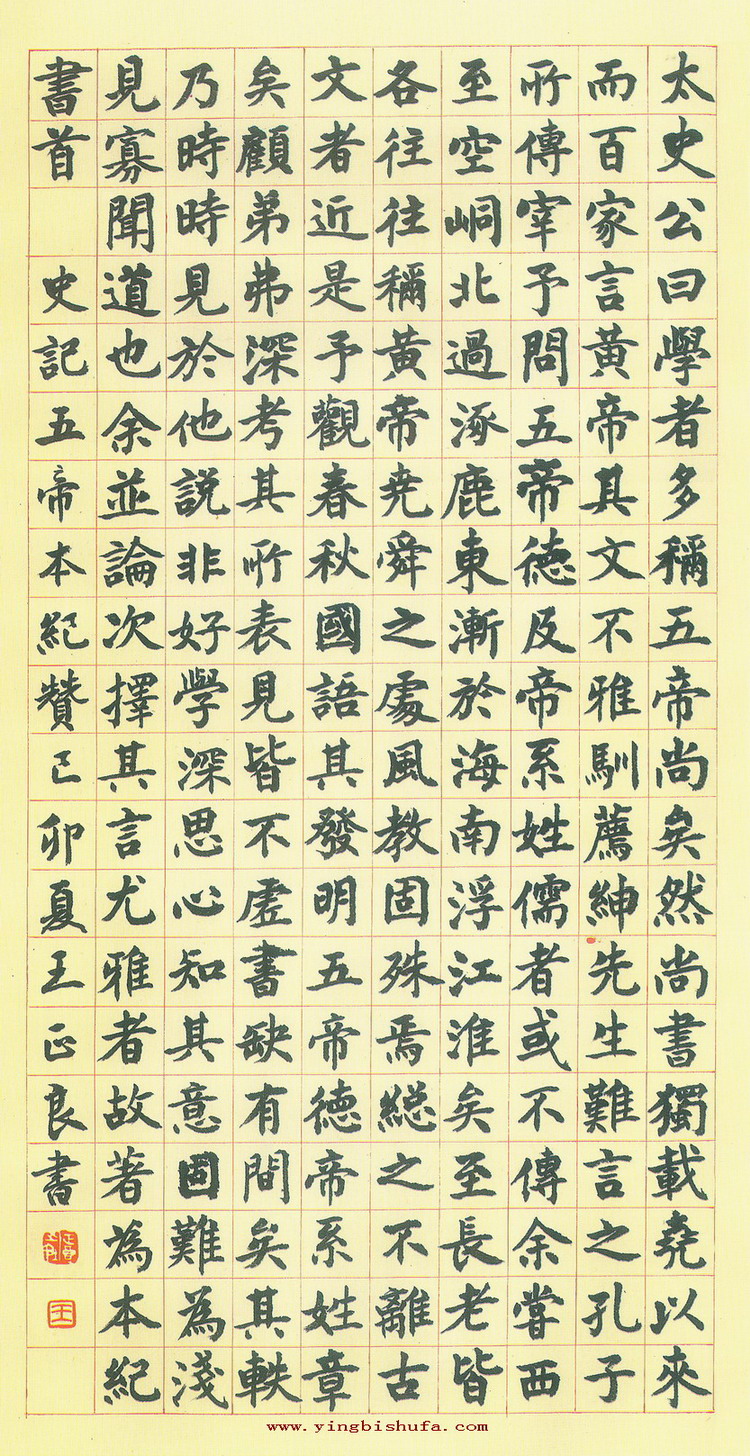 太史公曰學者多稱五帝尚矣然尚書獨載堯以來
而百家言黃帝其文不雅馴薦紳先生難言之孔子
所傳宰予問五帝德及帝系姓儒者或不傳余嘗西
至空峒北過涿鹿東漸於海南浮江淮矣至長老皆
各往往稱黃帝堯舜之處風教固殊焉總之不離古
文者近是予觀春秋國語其發明五帝德帝系姓章
矣顧弟弗深考其所表見皆不虛書缺有間矣其軼
乃時時見於他說非好學深思心知其意固難為淺
見寡聞道也余並論次擇其言尤雅者故著為本紀
書首 史記五帝本紀贊己卯夏王正良書
王
www.yingbishufa.com